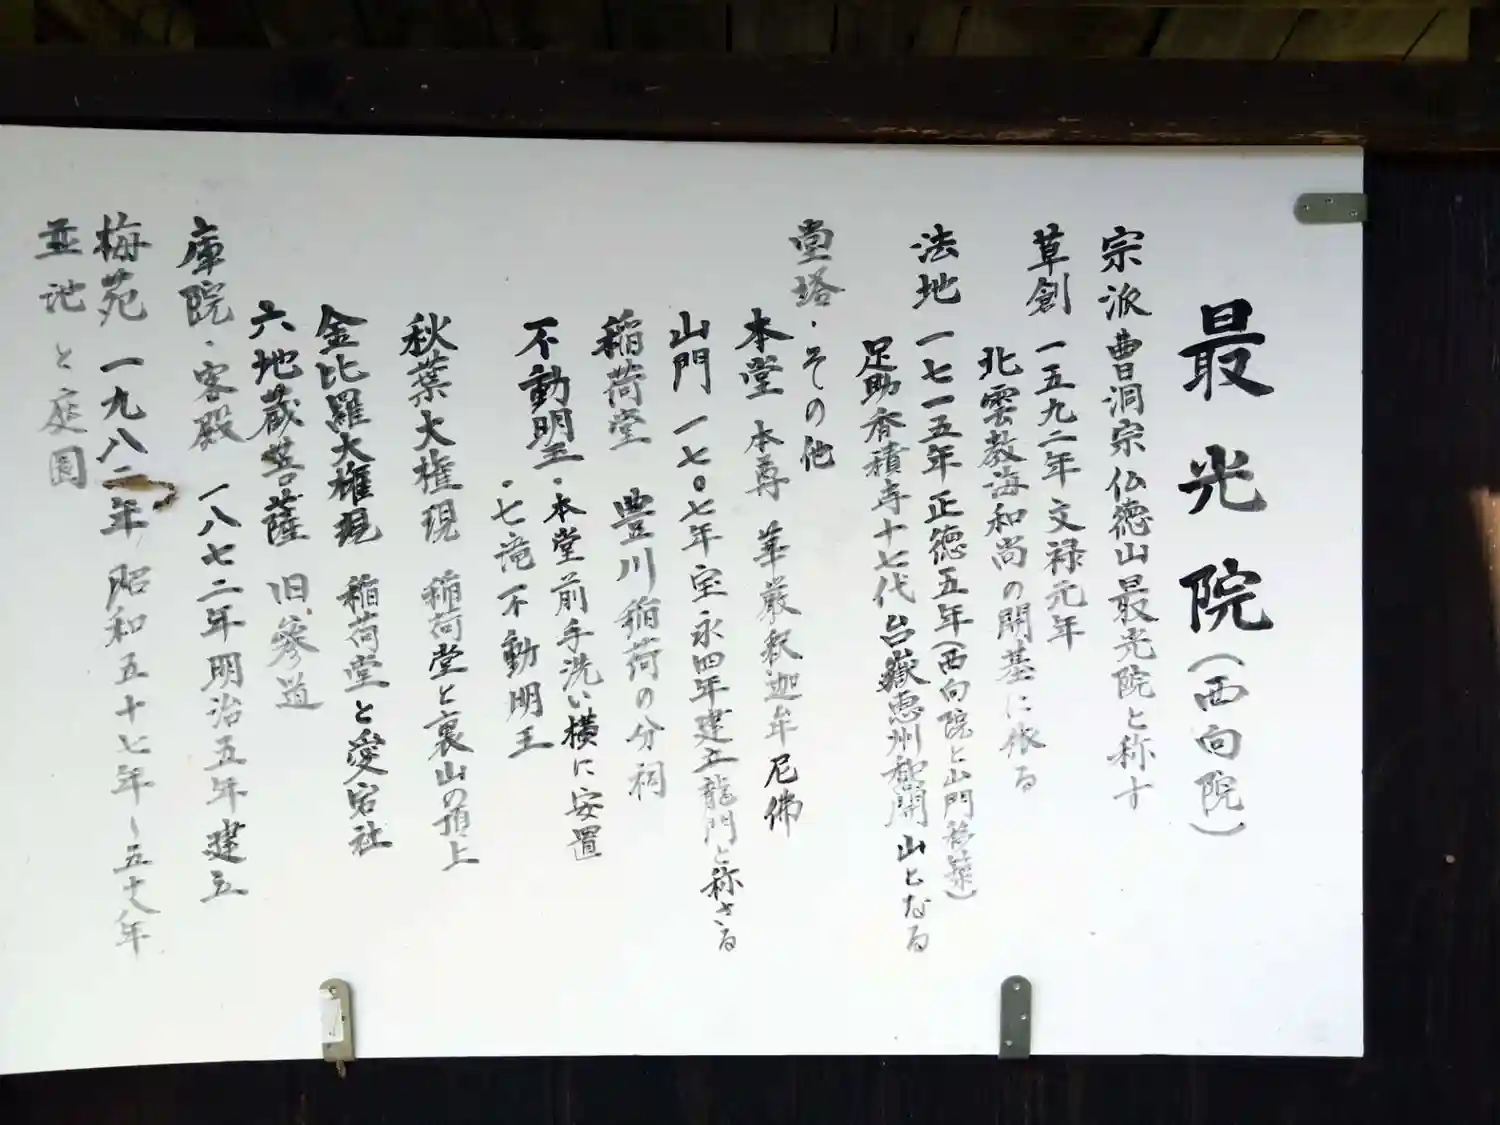 最光院(西向院)
宗派 曹洞宗仏徳山最光院と称す
草創 一五九二年文禄元年
北雲教海和尚の開基に依る
法地 一七一五年正徳五年(西向院と山門移築)
足助香積寺十七代 台嶽恵州 開山となる
堂塔・その他
本堂 本尊 華厳釈迦牟尼佛
山門 一七〇七年宝永四年建立龍門と称さる
稲荷堂 豊川稲荷の分祠
不動明王・本堂前手洗い横に安置
・七滝不動明王
秋葉大権現 稲荷堂と裏山の頂上
金比羅大権現 稲荷堂と愛宕社
六地蔵菩薩 旧参道
庫院・客殿 一八七二年明治五年建立
梅苑 一九八二年昭和五十七年〜五十八年
並池と庭園